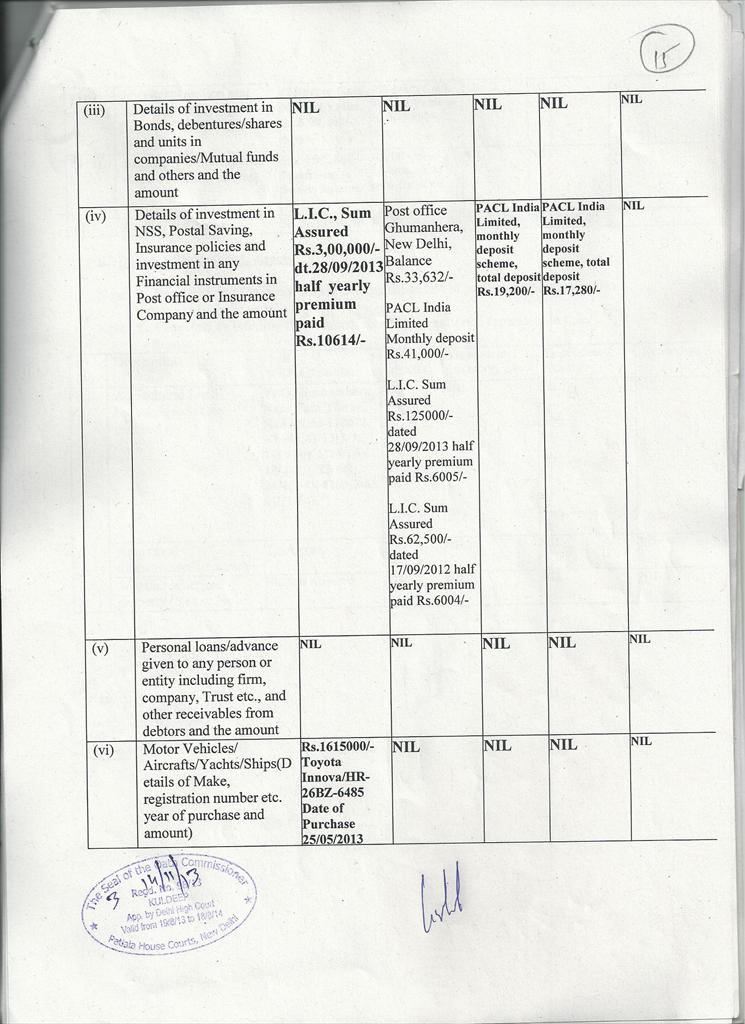 15
(iii)
Details of investment in
Bonds, debentures/shares
and units in
companies/Mutual funds
and others and the
amount
NIL
NIL
NIL
NIL
NIL
(iv)
Details of investment in
NSS, Postal Saving,
Insurance policies and
investment in any
Financial instruments in
Post office or Insurance
Company and the amount
L.I.C., Sum
Assured
Rs.3,00,000/-
dt.28/09/2013
half yearly
premium
paid
Rs.10614/-
Post office
Ghumanhera,
New Delhi,
Balance
Rs.33,632/-
PACL India
Limited
Monthly deposit
Rs.41,000/-
L.I.C. Sum
Assured
Rs.125000/-
dated
28/09/2013 half
yearly premium
paid Rs.6005/-
L.I.C. Sum
Assured
Rs.62,500/-
dated
17/09/2012 half
yearly premium
paid Rs.6004/-
PACL India
Limited,
monthly
deposit
scheme,
total deposit
Rs.19,200/-
PACL India
Limited,
monthly
deposit
scheme, total
deposit
Rs.17,280/-
NIL
(v)
Personal loans/advance
given to any person or
entity including firm,
company, Trust etc., and
other receivables from
debtors and the amount
NIL
NIL
NIL
NIL
NIL
(vi)
Motor Vehicles/
Aircrafts/Yachts/Ships(D
etails of Make,
registration number etc.
year of purchase and
amount)
Rs.1615000/-
Toyota
Innova/HR-
26BZ-6485
Date of
Purchase
25/05/2013
NIL
NIL
NIL
NIL
The Seal of the Oath Commissioner
14/11/13
3
Regd. No.
KULDEEP
App. by Delhi High Court
Valid from 19/8/13 to 18/8/14
Patiala House Courts, New Delhi